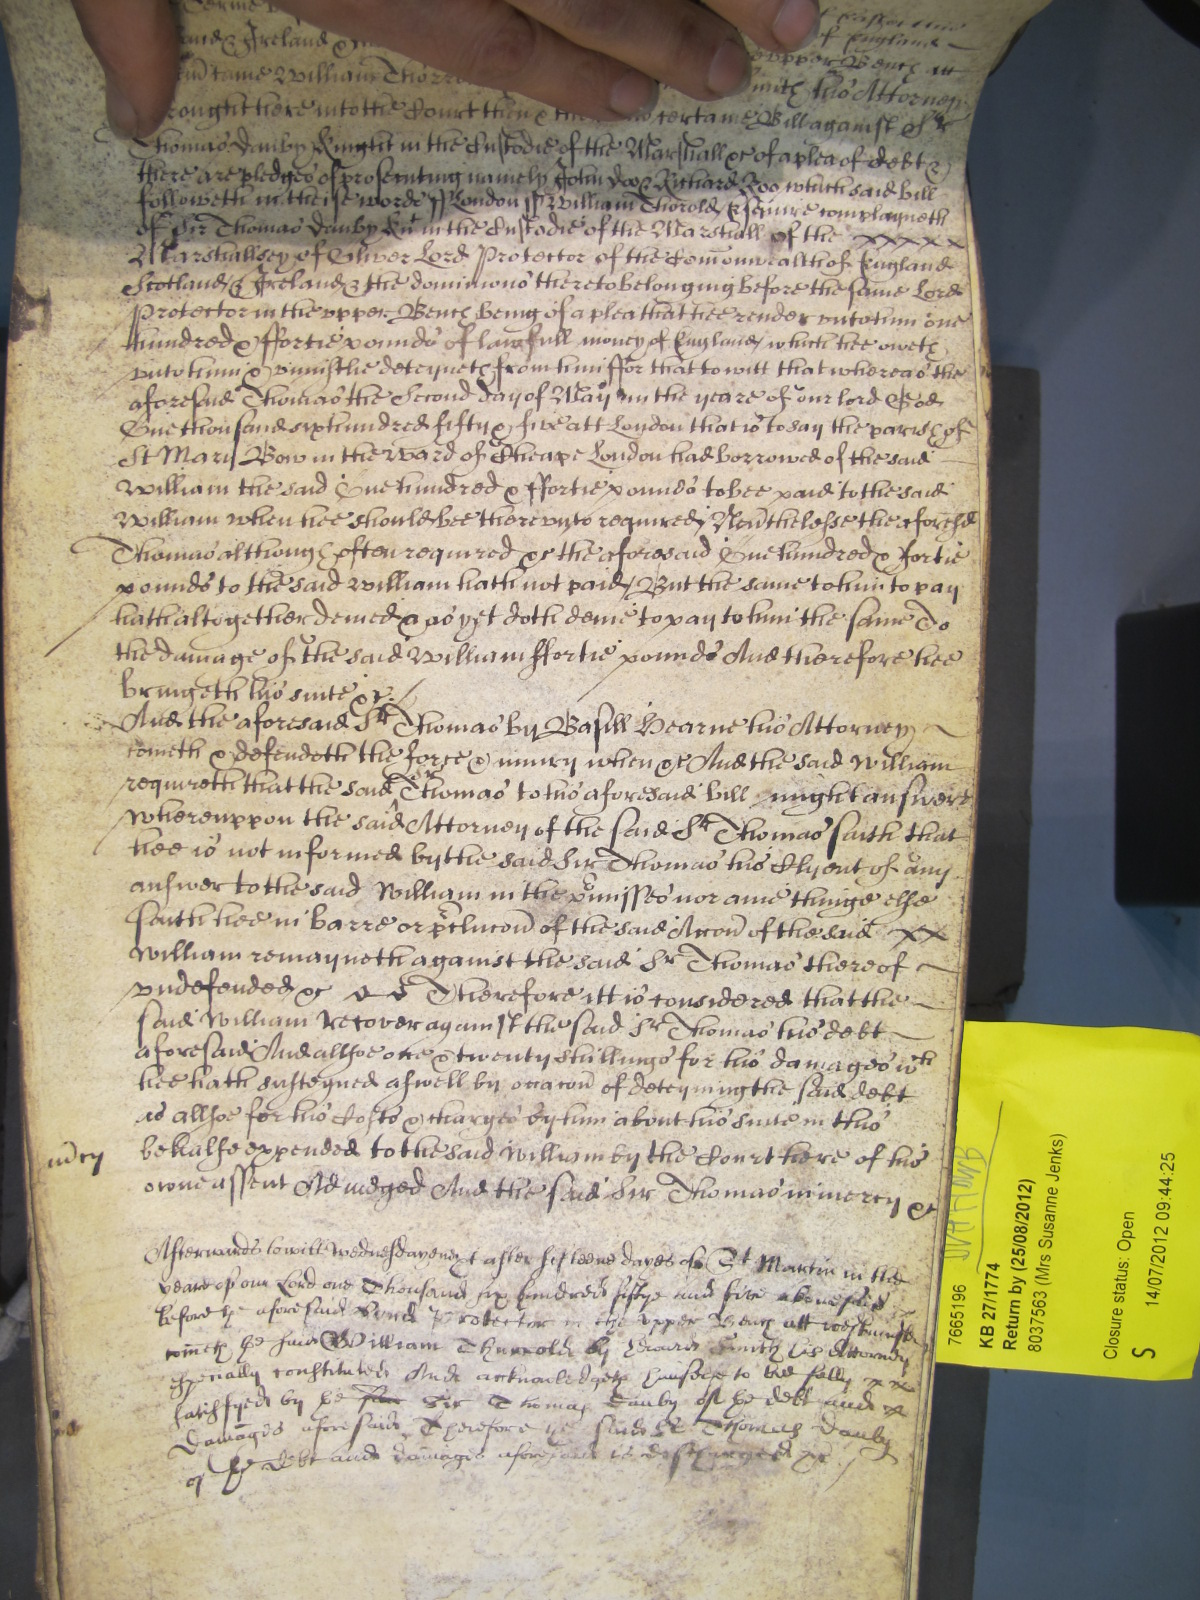 Terme
and & Ireland &
of England
upper Bench att
came William Thorr
Smith his Attorney
rought here into the Court then & there his certaine Bill against Sr
Thomas Danby Knight in the Custodie of the Marshall &c of a plea of debt &
there are pledges of prosecuting namely John Doo & Richard Roo which said bill
followeth in theise words ss London ss William Thorold Esquire complayneth
of Sir Thomas Danby Kt in the Custodie of the Marshall of the xxxxx
Marshallsey of Oliver Lord Protector of the Comonwealth of England
Scotland & Ireland & the dominions thereto belonging before the same Lord
Protector in the upper Bench being of a plea that hee render unto him one
hundred & ffortie pounds of lawfull money of England which hee oweth
unto him & uniustlie deteyneth from him ffor that to witt that whereas the
aforesaid Thomas the Second day of May in the yeare of our lord God
One thousand six hundred fifty & five att London that is to say the parish of
St Mary Bow in the Ward of Cheape London had borrowed of the said
William the said One hundred & ffortie pounds to bee paid to the said
William when hee should bee thereunto required Nevthelesse the aforesd
Thomas although often required &c the aforesaid One hundred & fortie
pounds to the said William hath not paid But the same to him to pay
hath altogether denied & as yet doth denie to pay to him the same To
the damage of the said William ffortie pounds And therefore hee
bringeth his suite &c
And the aforesaid Sr Thomas by Basill Hearne his Attorney
cometh & defendeth the force & iniury when &c And the said William
requireth that the said Sr Thomas to his aforesaid bill might answere
Whereuppon the said Attorney of the said Sr Thomas saith that
hee is not informed by the said Sir Thomas his Clyent of any
answer to the said William in the pmisses nor anie thinge else
saith hee in barre or pclucon of the said Accon of the said xx
William remayneth against the said Sr Thomas thereof
undefended &c Therefore itt is considered that the
said William Recover against the said Sr Thomas his debt
aforesaid And allsoe one & twenty shillings for his damages wch
hee hath susteyned aswell by occacon of deteyning the said debt
as allsoe for his Costs & charges by him about his suite in this
behalfe expended to the said William by the Court here of his
m̄cy
owne assent Adiudged And the said Sir Thomas in mercy &c
Afterwards to witt Wednesday next after fifteene dayes of St Martin in the
yeare of our Lord one Thousand six hundred fiftye and five abovesaid
before ye aforesaid Lord Protector in the upper Bench att westminster
cometh ye said William Thurrold by Edward Smith his Attorney
specially constituted And acknowledgeth himselfe to bee fully xx
satisfyed by ye Sir Thomas Danby of ye debt and
damages aforesaid Therefore ye said Sr Thomas Danby
of ye debt and damages aforesaid is discharged &c
7665196
KB 27/1774
Return by (25/08/2012)
8037563 (Mrs Susanne Jenks)
Closure status: Open
S 14/07/2012 09:44:25